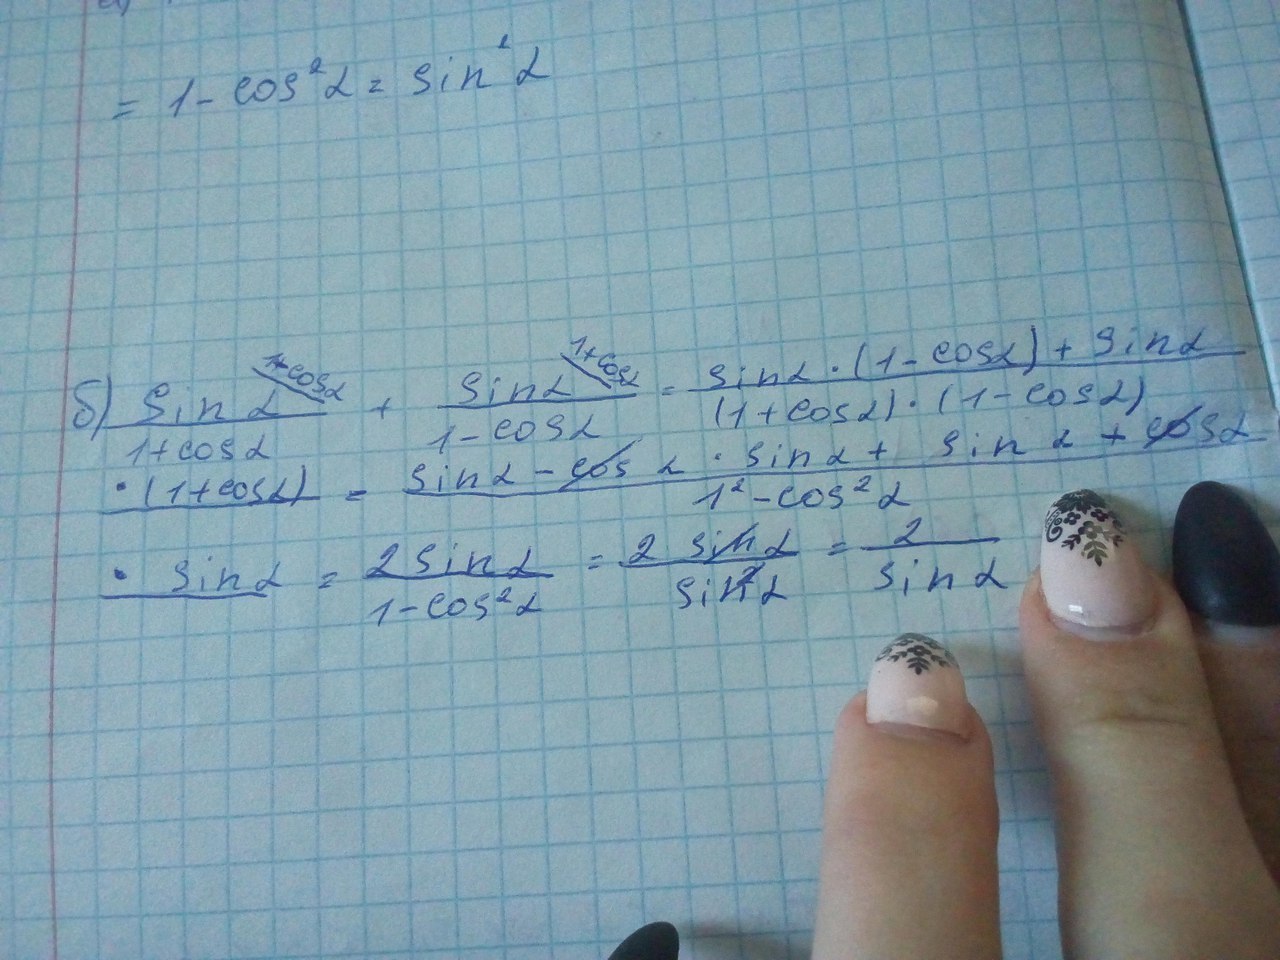 = 1 - cos²α = sin²α
б) sinα/(1+cosα) + sinα/(1-cosα) = (sinα·(1-cosα) + sinα
·(1+cosα))/((1+cosα)·(1-cosα)) = (sinα - cosα·sinα + sinα + cosα
· sinα)/(1²-cos²α) = 2sinα/(1-cos²α) = 2sinα/sin²α = 2/sinα